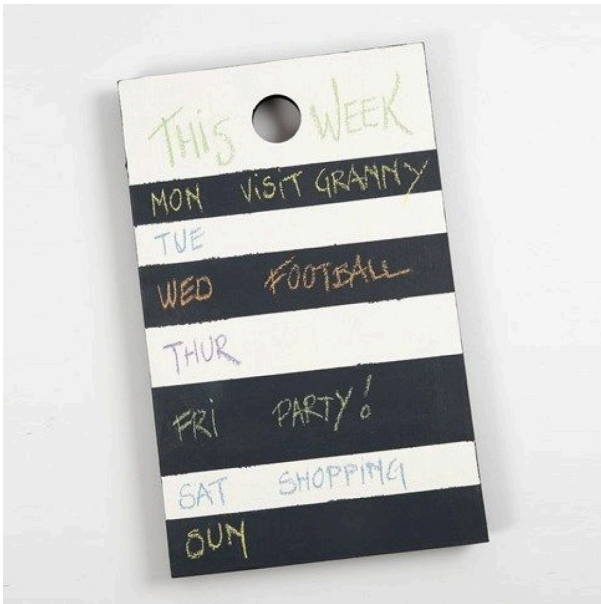 THIS WEEK
MON VISIT GRANNY
TUE
WED FOOTBALL
THUR
FRI PARTY!
SAT SHOPPING
SUN